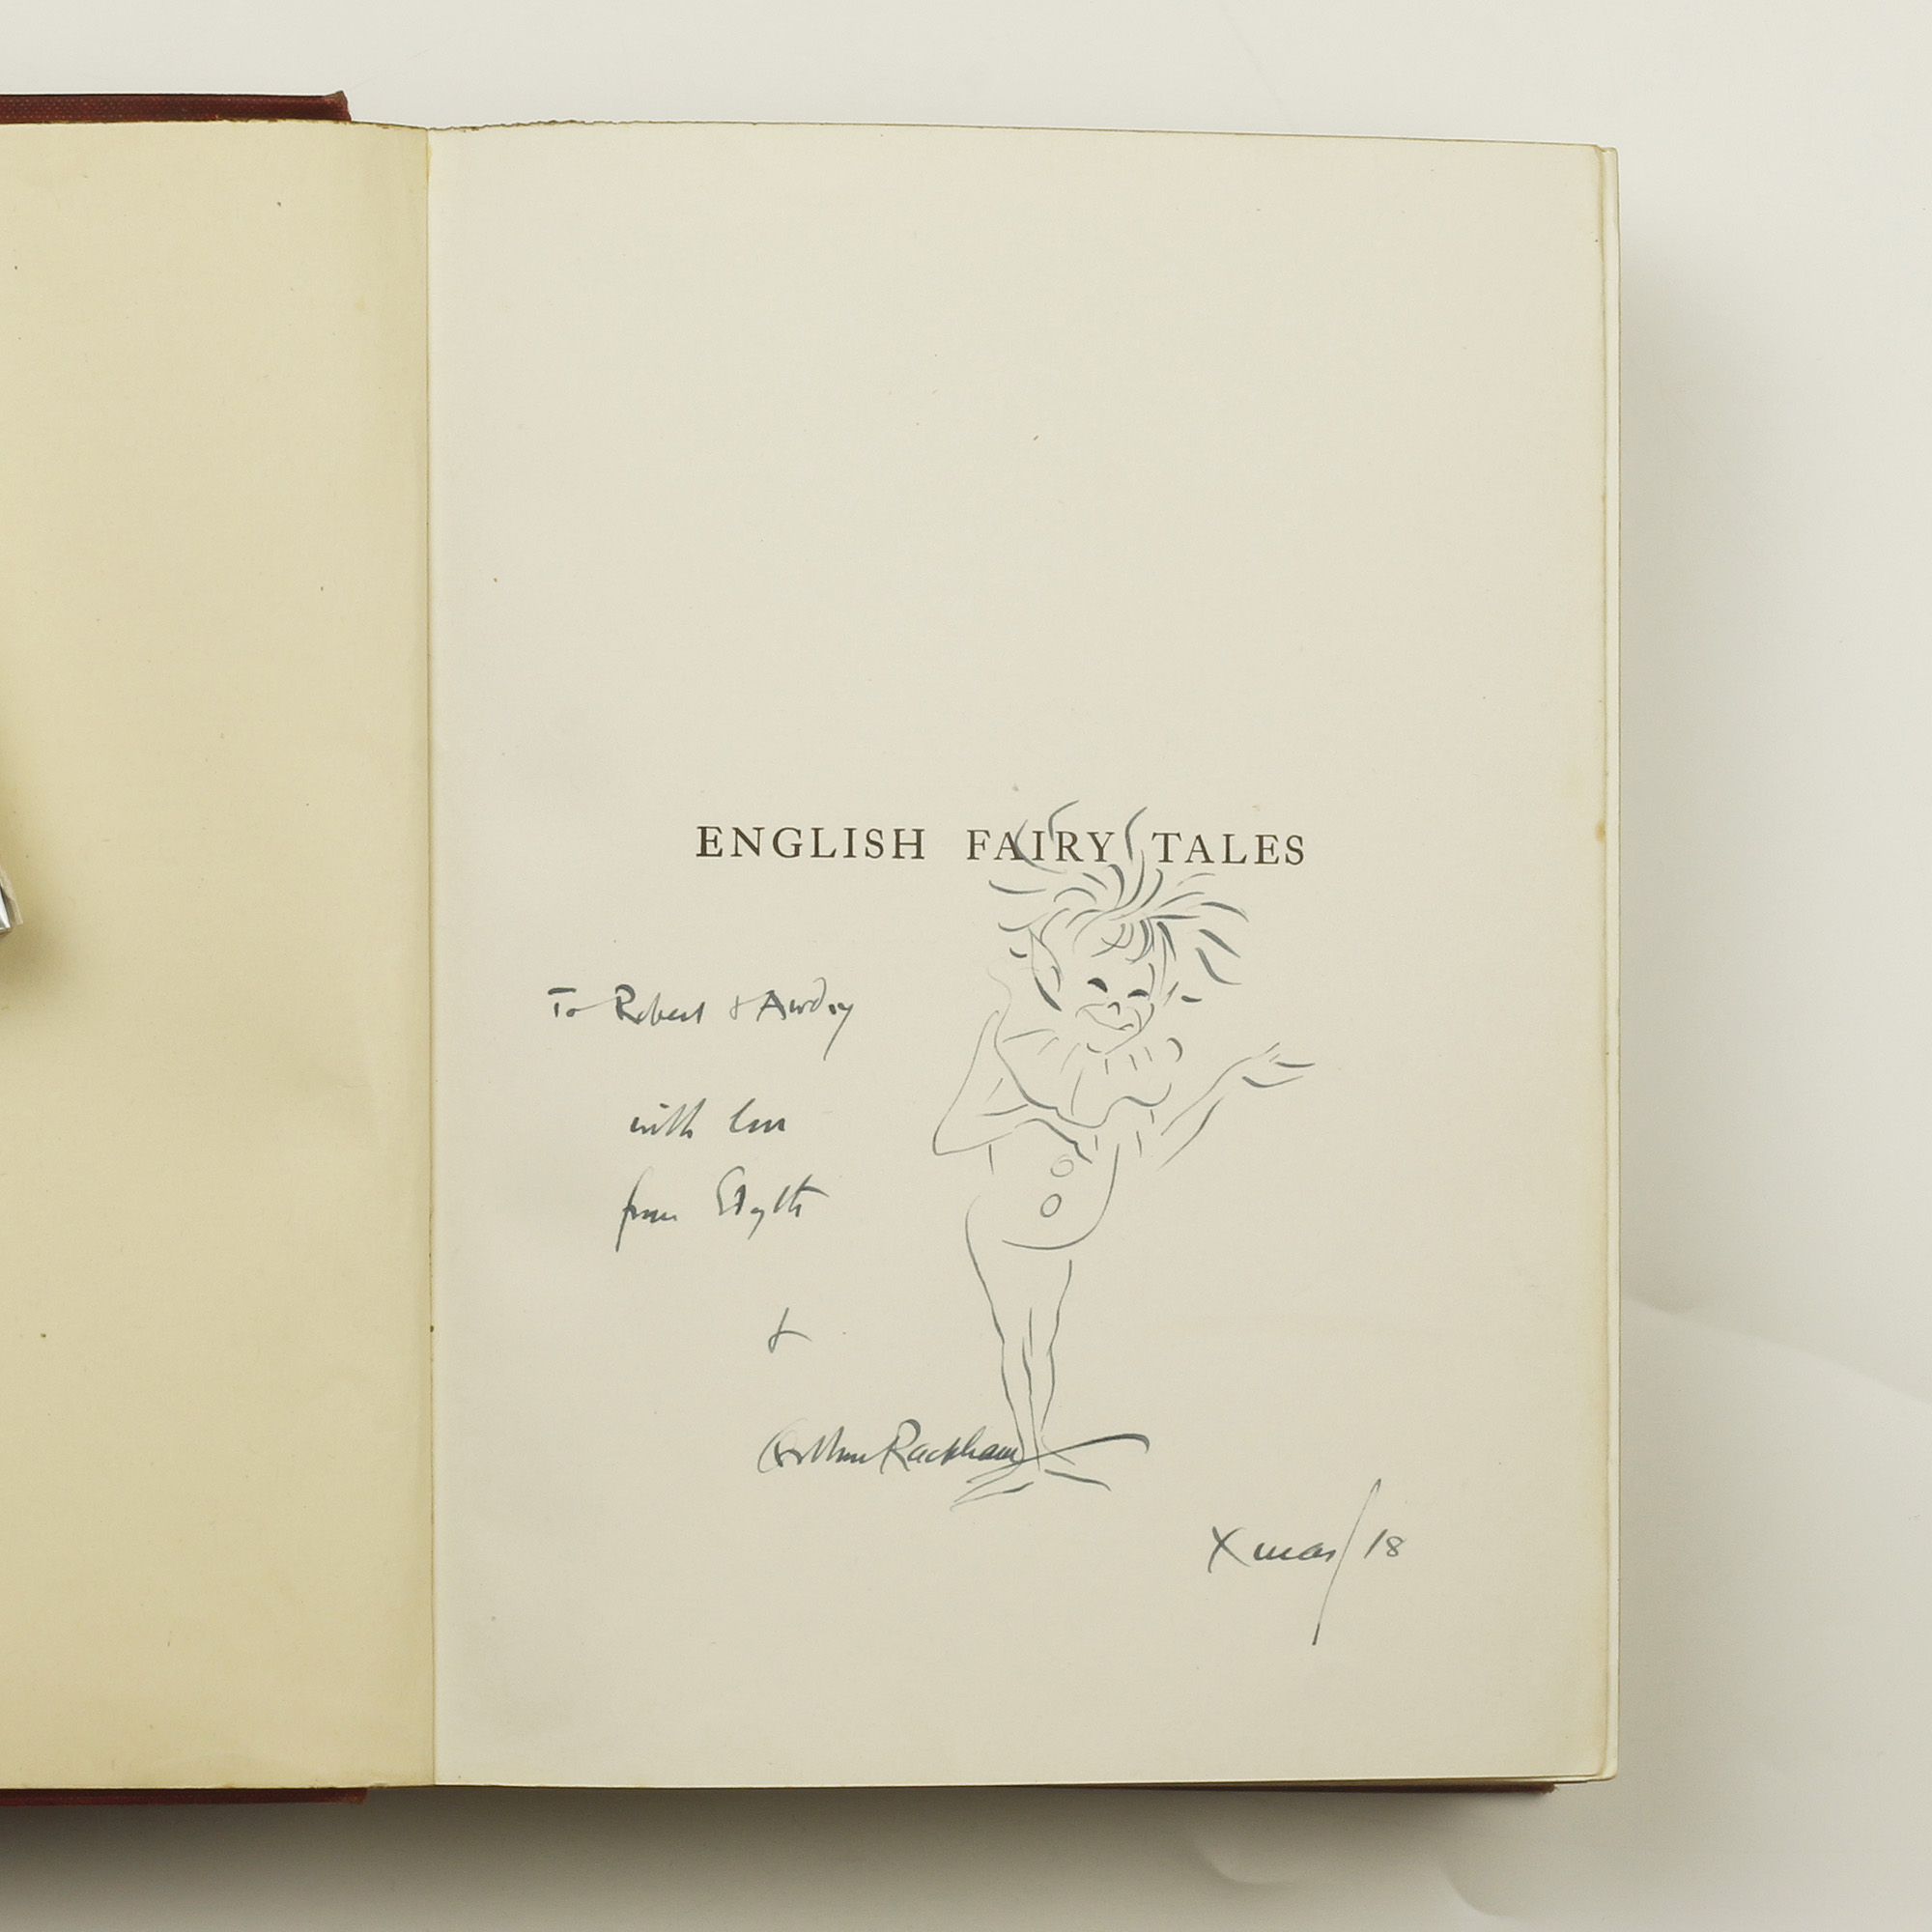 ENGLISH FAIRY TALES
To Robert & Audrey
with love
from Edyth
&
Arthur Rackham
Xmas/18